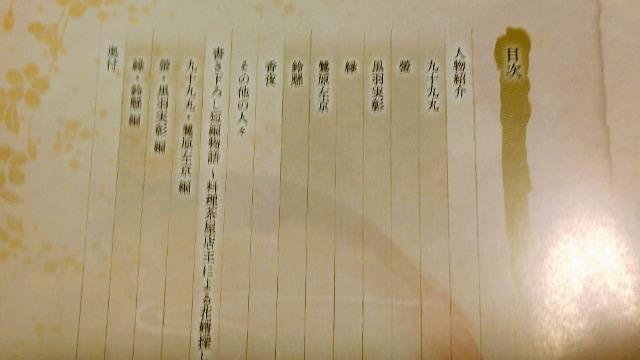 目次
人物紹介
九十九丸
螢
黒羽実彰
縁
鷺原左京
鈴懸
香夜
その他の人々
書き下ろし短編物語～料理茶屋店主による花嫁探し
九十九丸・鷺原左京編
螢・黒羽実彰編
縁・鈴懸編
奥付